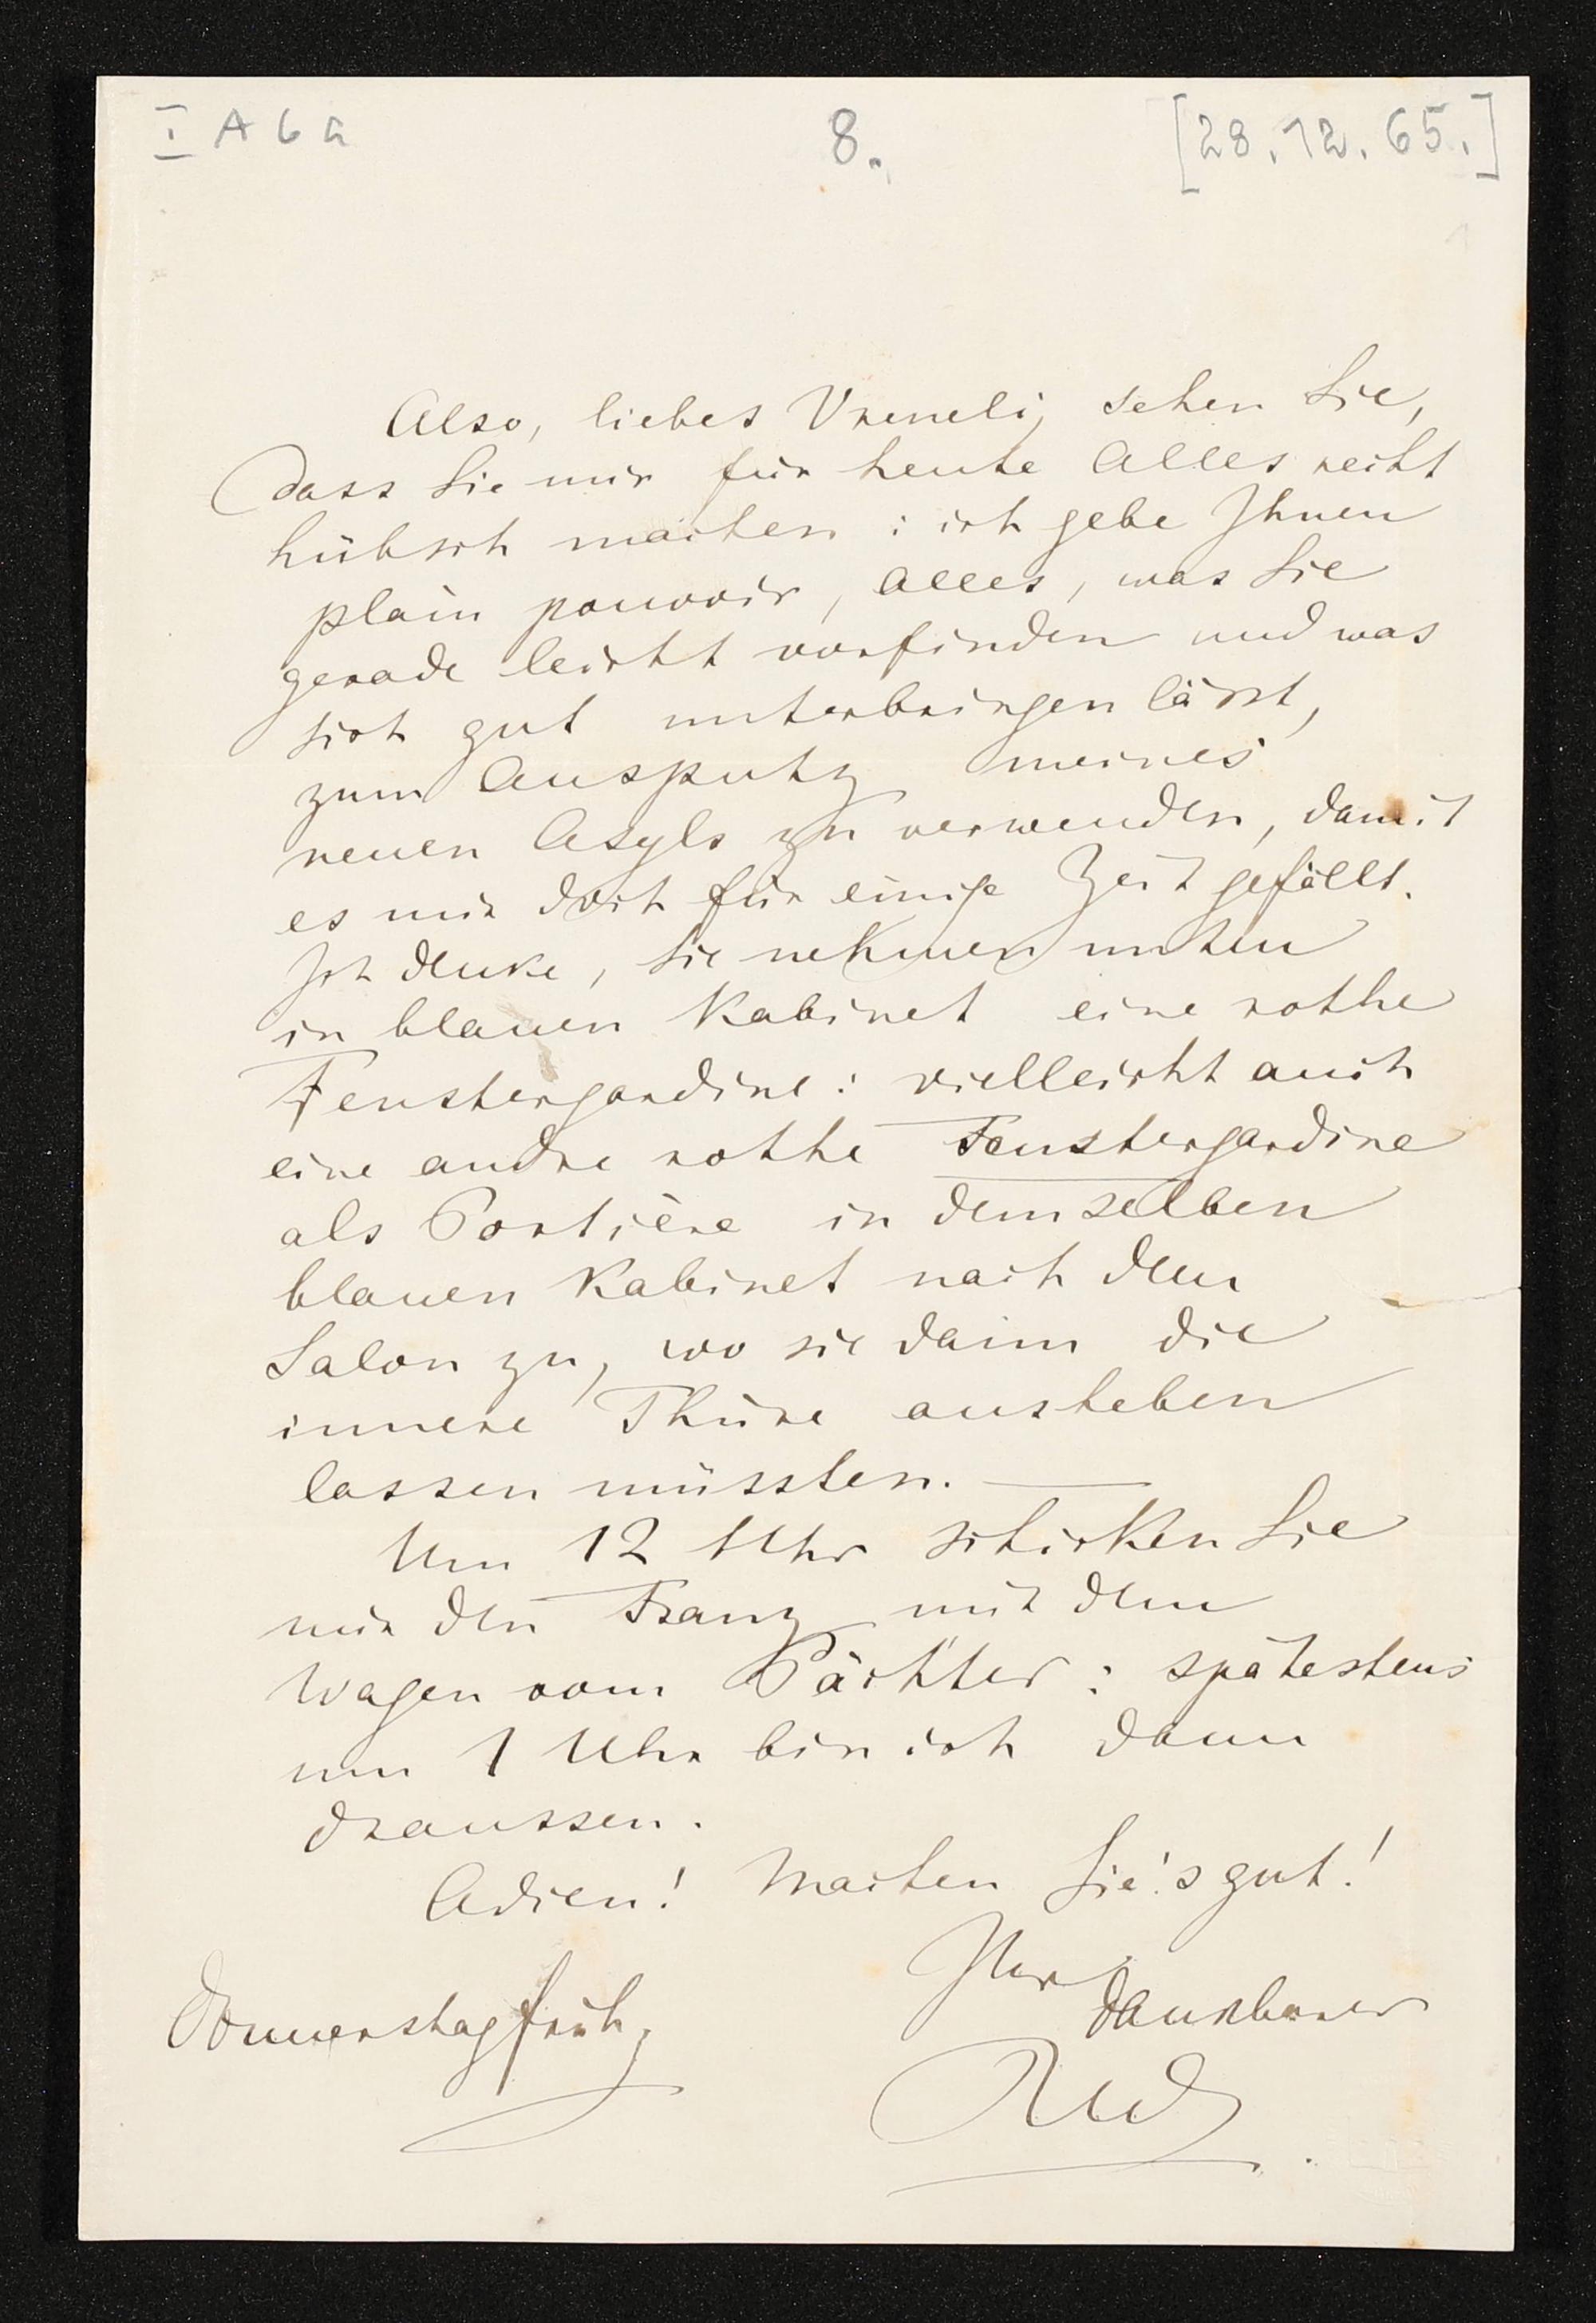 I A 6 a 8. [28.12.65.]
Also, liebes Vreneli, sehen Sie,
dass Sie mir für heute Alles recht
hübsch machen: ich gebe Ihnen
plain pouvoir, Alles, was Sie
gerade leicht vorfinden und was
sich gut unterbringen lässt,
zum Ausputz meines
neuen Asyls zu verwenden, damit
es mir dort für einige Zeit gefällt.
Ich denke, Sie nehmen unten
in blauen Kabinet eine rothe
Fenstergardine: vielleicht auch
eine andre rothe Fenstergardine
als Portière in demselben
blauen Kabinet nach dem
Salon zu, wo sie dann die
innere Thüre ausheben
lassen müssten. —
Um 12 Uhr schicken Sie
mir den Franz mit dem
Wagen vom Pächter: spätestens
um 1 Uhr bin ich dann
draussen.
Adieu! Machen Sie's gut!
Ihr
dankbarer
Donnerstag früh,
RW